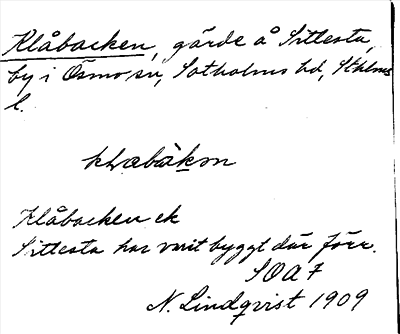 Klåbacken, gärde å Sittesta,
by i Ösmo sn, Sotholms hd, Sthlms
l.
Klåbacken ek
Sittesta har varit byggt där förr.
SOA 7
N. Lindqvist 1909